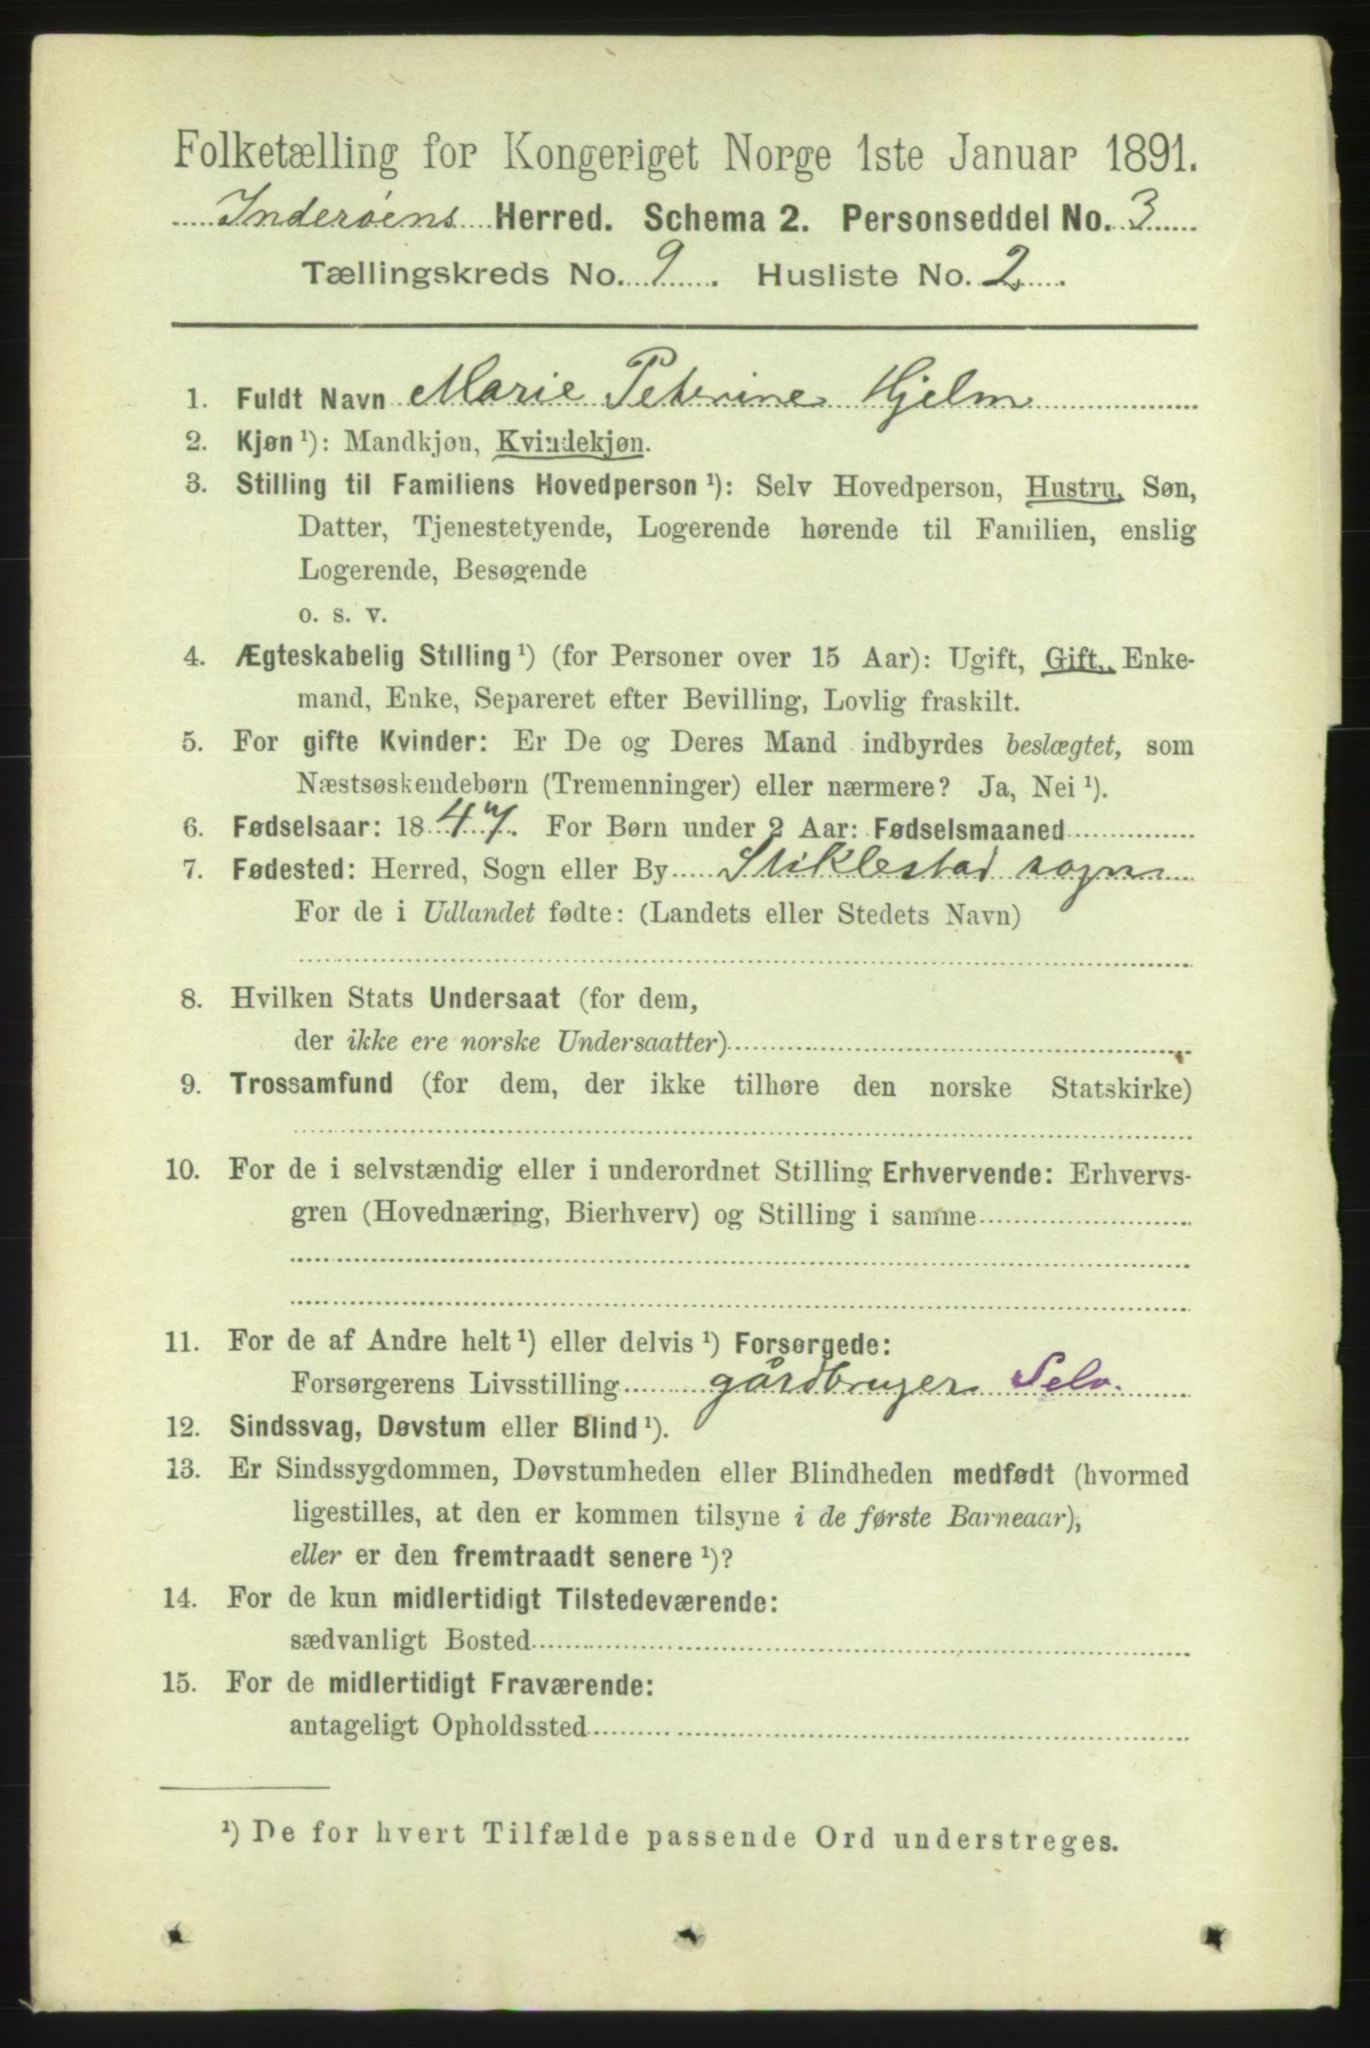 Folketælling for Kongeriget Norge 1ste Januar 1891.
Inderøens Herred. Schema 2. Personseddel No. 3
Tællingskreds No. 9. Husliste No. 2.
1. Fuldt Navn Marie Peterine Hjelm
2. Kjøn ¹): Mandkjøn, Kvindekjøn.
3. Stilling til Familiens Hovedperson ¹): Selv Hovedperson, Hustru, Søn,
Datter, Tjenestetyende, Logerende hørende til Familien, enslig
Logerende, Besøgende
o. s. v.
4. Ægteskabelig Stilling ¹) (for Personer over 15 Aar): Ugift, Gift, Enke-
mand, Enke, Separeret efter Bevilling, Lovlig fraskilt.
5. For gifte Kvinder: Er De og Deres Mand indbyrdes beslægtet, som
Næstsøskendebørn (Tremenninger) eller nærmere? Ja, Nei ¹).
6. Fødselsaar: 1847. For Børn under 2 Aar: Fødselsmaaned
7. Fødested: Herred, Sogn eller By Stiklestad sogn
For de i Udlandet fødte: (Landets eller Stedets Navn)
8. Hvilken Stats Undersaat (for dem,
der ikke ere norske Undersaatter)
9. Trossamfund (for dem, der ikke tilhøre den norske Statskirke)
10. For de i selvstændig eller i underordnet Stilling Erhvervende: Erhvervs-
gren (Hovednæring, Bierhverv) og Stilling i samme
11. For de af Andre helt ¹) eller delvis ¹) Forsørgede:
Forsørgerens Livsstilling gårdbruger Selv.
12. Sindssvag, Døvstum eller Blind ¹).
13. Er Sindssygdommen, Døvstumheden eller Blindheden medfødt (hvormed
ligestilles, at den er kommen tilsyne i de første Barneaar),
eller er den fremtraadt senere ¹)?
14. For de kun midlertidigt Tilstedeværende:
sædvanligt Bosted
15. For de midlertidigt Fraværende:
antageligt Opholdssted
¹) De for hvert Tilfælde passende Ord understreges.